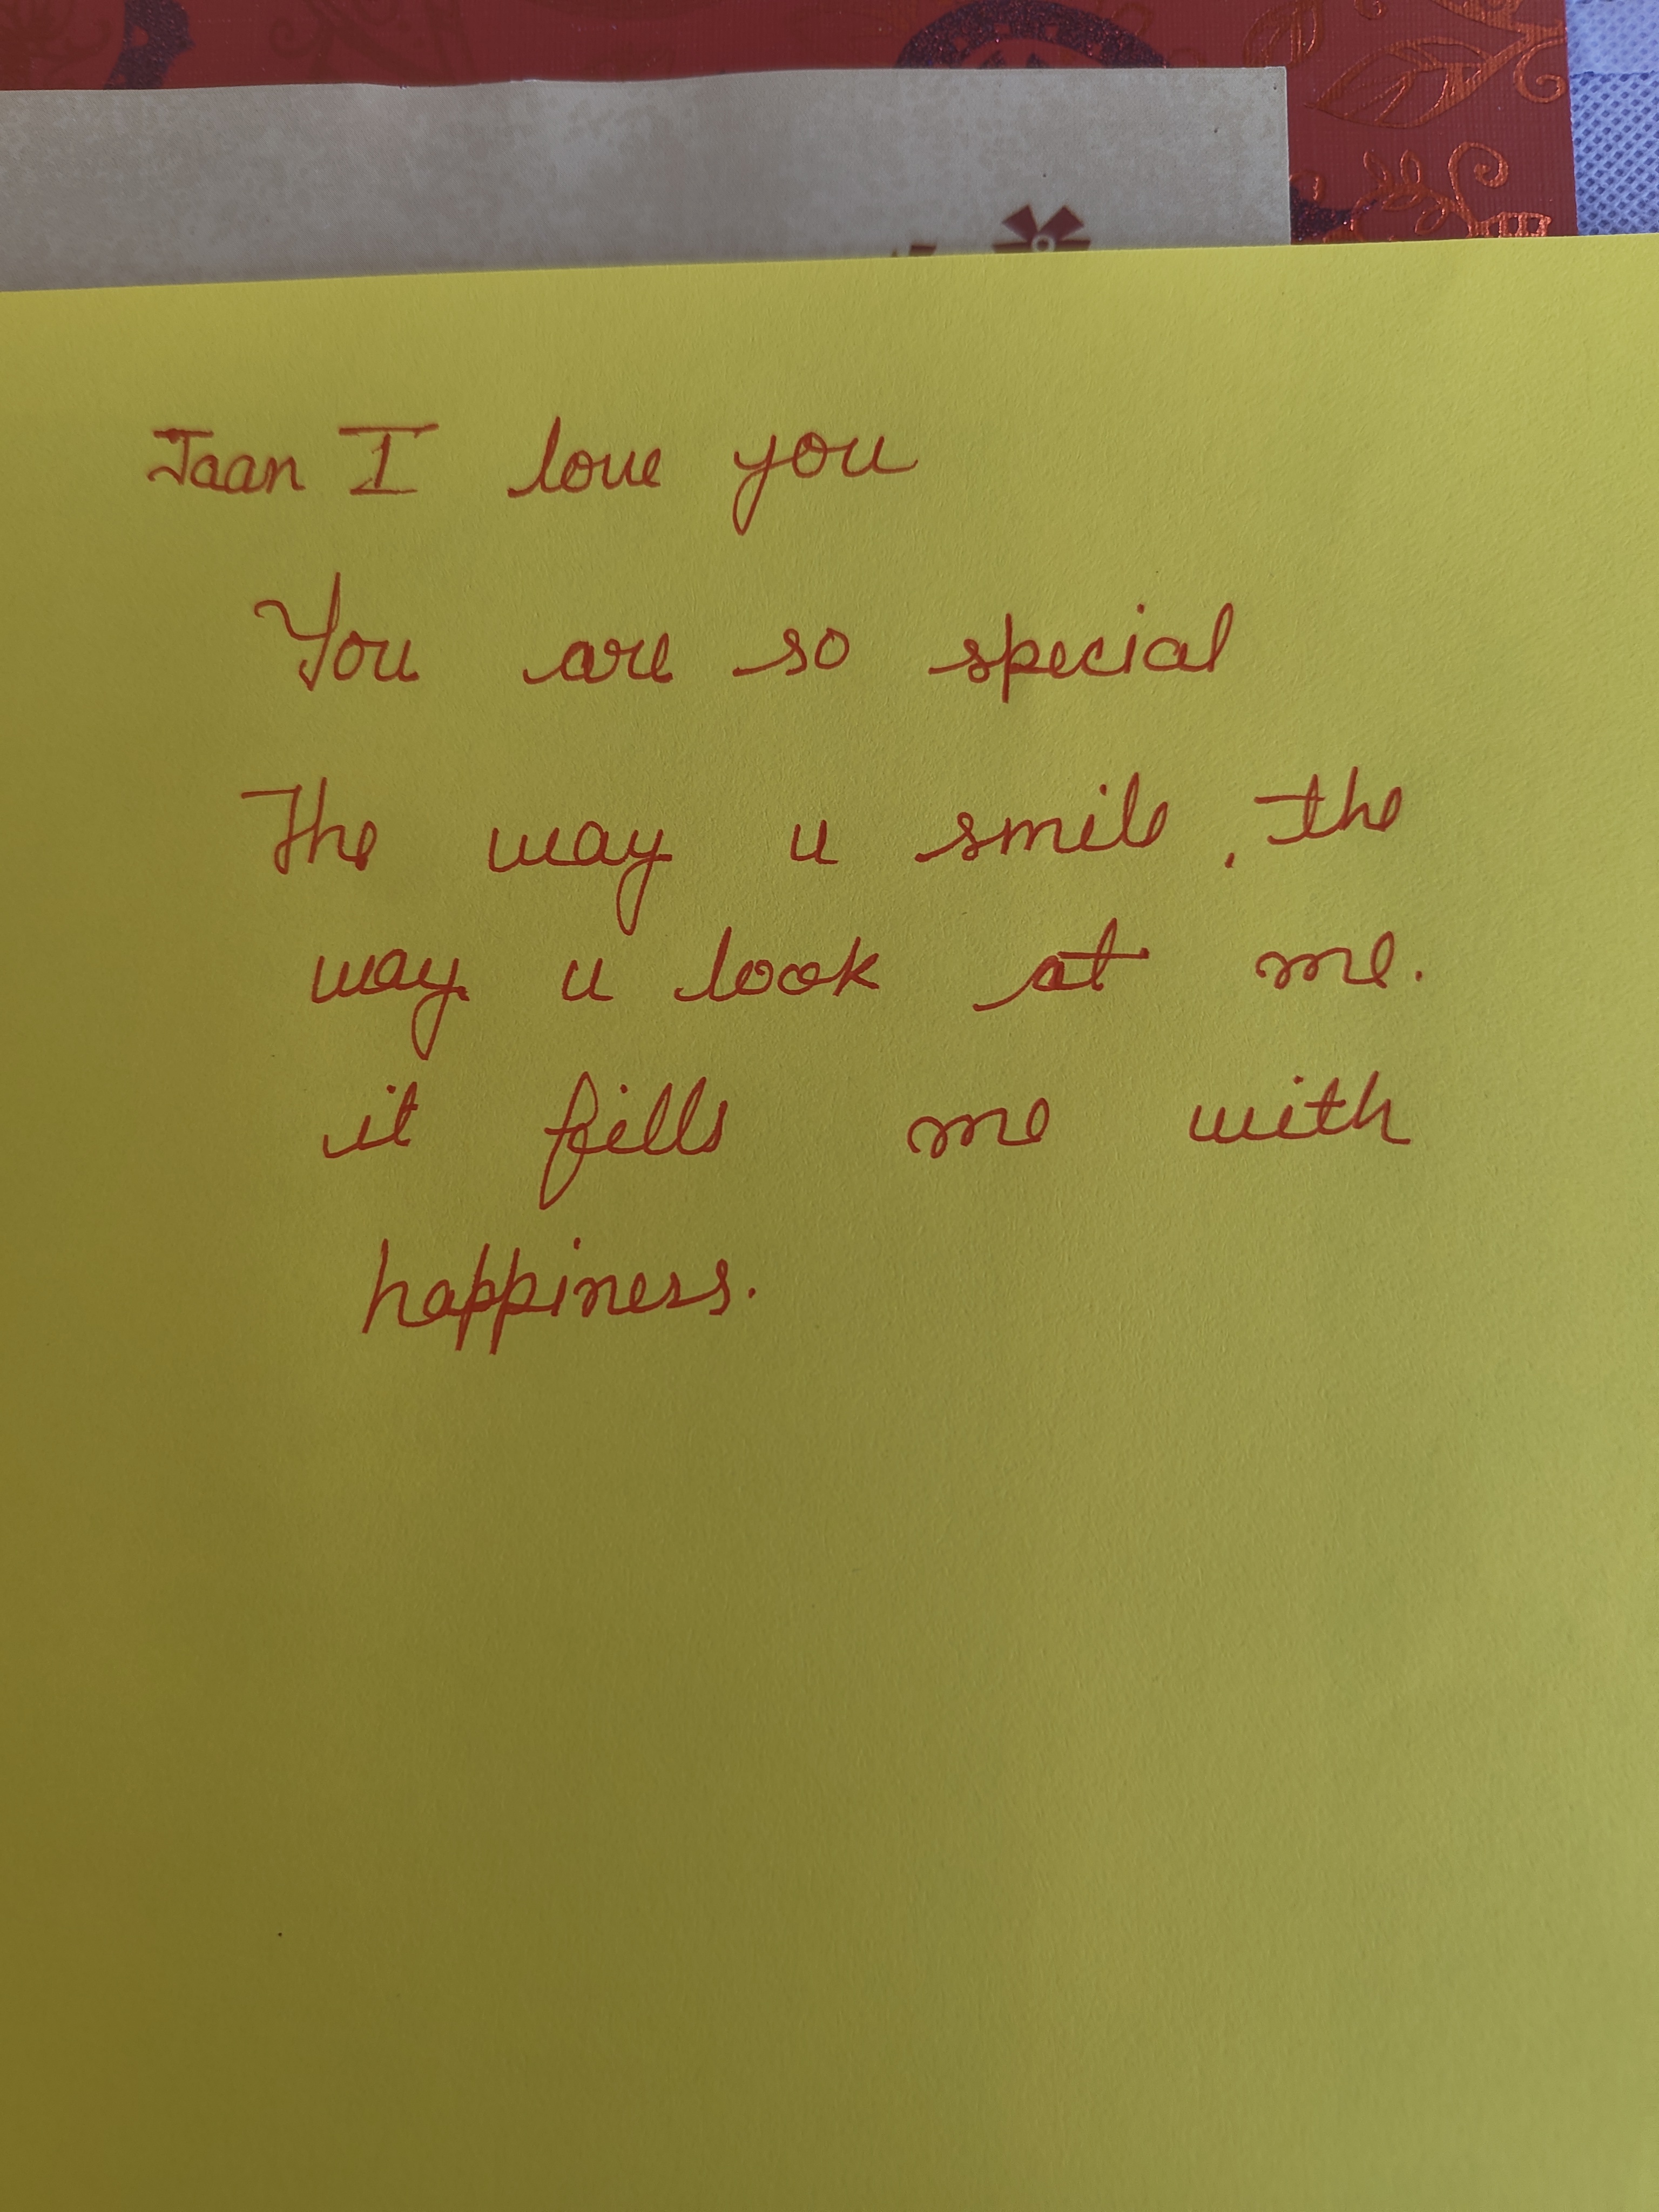 Jaan I love you
You are so special
The way u smile, the
way u look at me.
it fills me with
happiness.